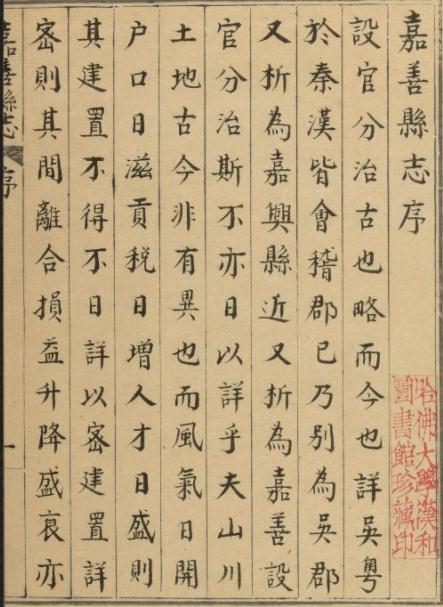 嘉善縣志序
設官分治古也略而今也詳吳粵
於秦漢皆會稽郡已乃別為吳郡
又析為嘉興縣近又折為嘉善設
官分治斯不亦日以詳乎夫山川
土地古今非有異也而風氣日開
户口日滋貢税日增人才日盛則
其建置不得不日詳以宻建置詳
宻則其間離合損益升降盛衰亦
嘉善縣志 序 一
哈佛大學漢和
圖書館珍藏印